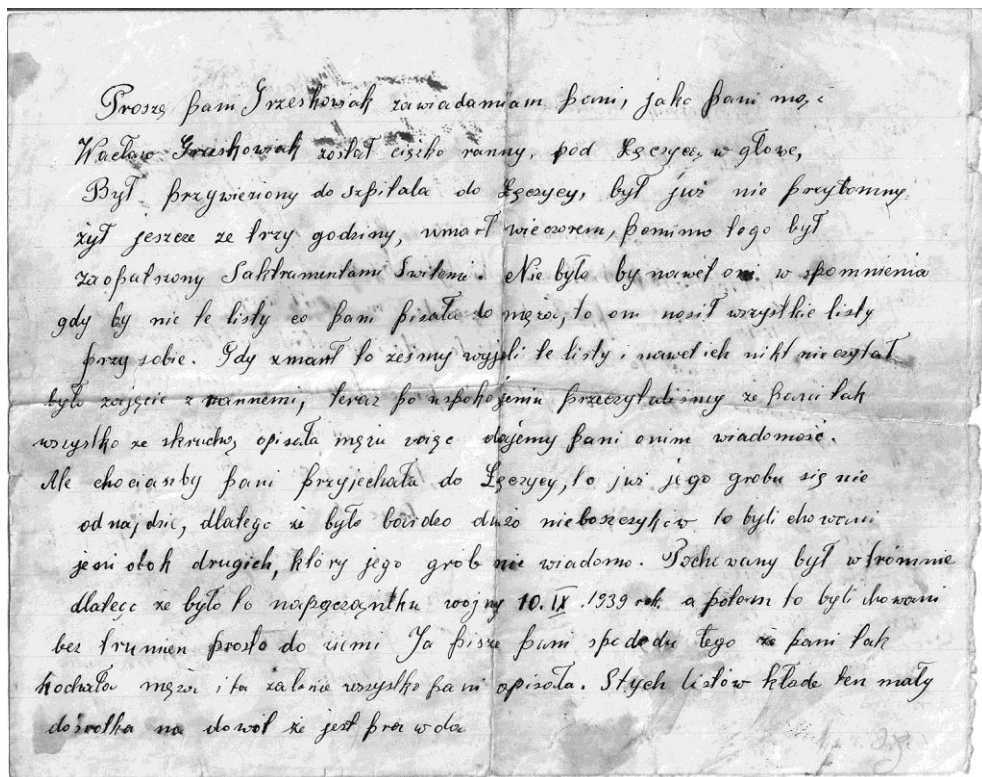 Proszę pani Grzeskowiak zawiadamiam pani, jako pani mąż
Wacław Grzeskowiak został ciężko ranny, pod Łęczycą, w głowe,
Był przywieziony do szpitala do Łęczycy, był już nie przytomny
żył jeszcze ze trzy godziny, umarł wieczorem, pomimo tego był
zaopatszony Saktramentami Świtemi. Nie było by nawet o nim w spomnienia
gdy by nie te listy co pani pisała do męża, to on nosił wszystkie listy
przy sobie. Gdy zmarł to żeśmy wyjeli te listy i nawet ich nikt nie czytał
było zajęcie z rannemi, teraz po uspokojeniu przeczytaliśmy ze pani tak
wszystko ze skruchą opisała mężu więc dajemy pani onim wiadomość.
Ale chociasby pani przyjechała do Łęczycy, to już jego grobu się nie
odnajdzie, dlatego że było bardzo dużo nieboszczyków to byli chowani
jeni obok drugich, który jego grób nie wiadomo. Pochowany był w trómnie
dlatego że było to napączątku wojny 10.IX.1939 rok. a potem to byli chowani
bez trumien prosto do ziemi Ja pisze pani spododu tego że pani tak
kochała męża i ta żałonie wszystko pani opisała. Stych listów kłade ten mały
dośrotka na dowót że jest prawda